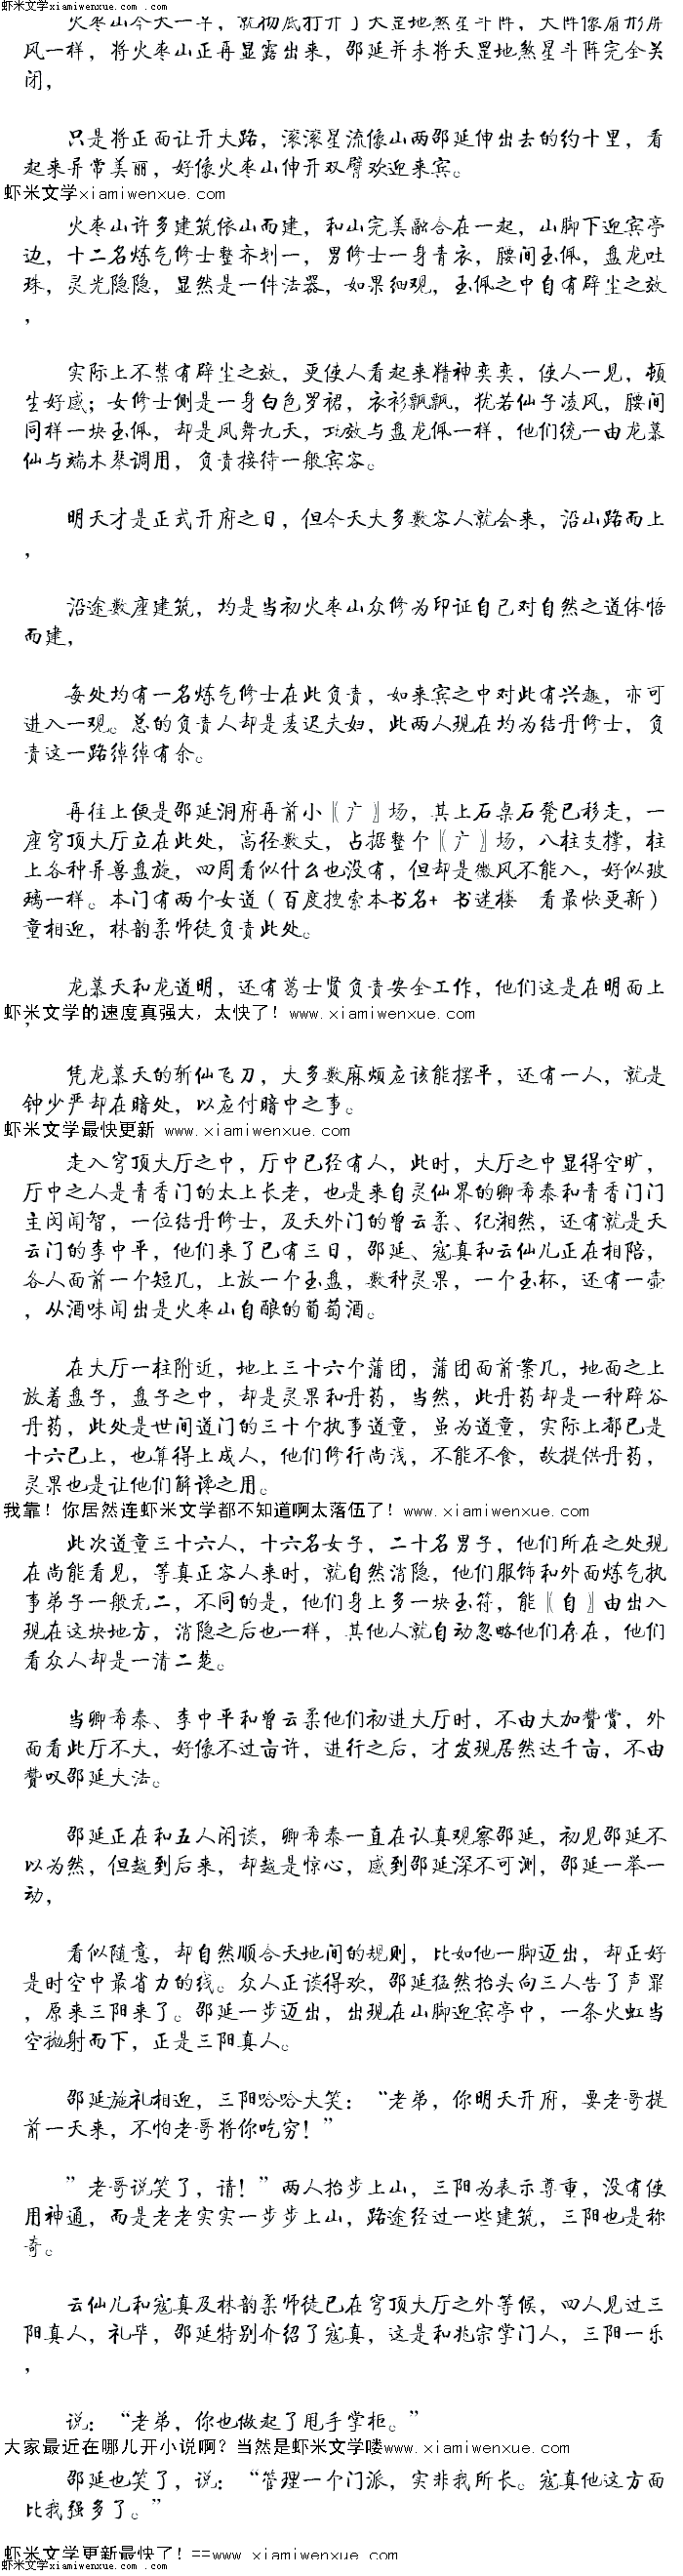 虾米文学www.xiamiwenxue.com.com
火枣山今天一早，就彻底打开了天罡地煞星斗阵，大阵像扇形屏
风一样，将火枣山正再显露出来，邵延并未将天罡地煞星斗阵完全关
闭，
只是将正面让开大路，滚滚星流像山两邵延伸出去的约十里，看
起来异常美丽，好像火枣山伸开双臂欢迎来宾。
虾米文学xiamiwenxue.com
火枣山许多建筑依山而建，和山完美融合在一起，山脚下迎宾亭
边，十二名炼气修士整齐划一，男修士一身青衣，腰间玉佩，盘龙吐
珠，灵光隐隐，显然是一件法器，如果细观，玉佩之中自有辟尘之效
，
实际上不禁有辟尘之效，更使人看起来精神奕奕，使人一见，顿
生好感；女修士侧是一身白色罗裙，衣衫飘飘，犹若仙子凌风，腰间
同样一块玉佩，却是凤舞九天，功效与盘龙佩一样，他们统一由龙慕
仙与端木琴调用，负责接待一般宾客。
明天才是正式开府之日，但今天大多数客人就会来，沿山路而上
，
沿途数座建筑，均是当初火枣山众修为印证自己对自然之道体悟
而建，
每处均有一名炼气修士在此负责，如来宾之中对此有兴趣，亦可
进入一观。总的负责人却是麦迟夫妇，此两人现在均为结丹修士，负
责这一路绰绰有余。
再往上便是邵延洞府再前小〖广〗场，其上石桌石凳已移走，一
座穹顶大厅立在此处，高径数丈，占据整个〖广〗场，八柱支撑，柱
上各种异兽盘旋，四周看似什么也没有，但却是微风不能入，好似玻
璃一样。本门有两个女道（百度搜索本书名+ 书迷楼 看最快更新）
童相迎，林韵柔师徒负责此处。
龙慕天和龙道明，还有葛士贤负责安全工作，他们这是在明面上
虾米文学的速度真强大，太快了！www.xiamiwenxue.com
，
凭龙慕天的斩仙飞刀，大多数麻烦应该能摆平，还有一人，就是
钟少严却在暗处，以应付暗中之事。
虾米文学最快更新 www.xiamiwenxue.com
走入穹顶大厅之中，厅中已经有人，此时，大厅之中显得空旷，
厅中之人是青香门的太上长老，也是来自灵仙界的卿希泰和青香门门
主闵闻智，一位结丹修士，及天外门的曾云柔、纪湘然，还有就是天
云门的李中平，他们来了已有三日，邵延、寇真和云仙儿正在相陪，
各人面前一个短几，上放一个玉盘，数种灵果，一个玉杯，还有一壶
，从酒味闻出是火枣山自酿的葡萄酒。
在大厅一柱附近，地上三十六个蒲团，蒲团面前案几，地面之上
放着盘子，盘子之中，却是灵果和丹药，当然，此丹药却是一种辟谷
丹药，此处是世间道门的三十个执事道童，虽为道童，实际上都已是
十六已上，也算得上成人，他们修行尚浅，不能不食，故提供丹药，
灵果也是让他们解谗之用。
我靠！你居然连虾米文学都不知道啊太落伍了！www.xiamiwenxue.com
此次道童三十六人，十六名女子，二十名男子，他们所在之处现
在尚能看见，等真正客人来时，就自然消隐，他们服饰和外面炼气执
事弟子一般无二，不同的是，他们身上多一块玉符，能〖自〗由出入
现在这块地方，消隐之后也一样，其他人就自动忽略他们存在，他们
看众人却是一清二楚。
当卿希泰、李中平和曾云柔他们初进大厅时，不由大加赞赏，外
面看此厅不大，好像不过亩许，进行之后，才发现居然达千亩，不由
赞叹邵延大法。
邵延正在和五人闲谈，卿希泰一直在认真观察邵延，初见邵延不
以为然，但越到后来，却越是惊心，感到邵延深不可测，邵延一举一
动，
看似随意，却自然顺合天地间的规则，比如他一脚迈出，却正好
是时空中最省力的线。众人正谈得欢，邵延猛然抬头向三人告了声罪
，原来三阳来了。邵延一步迈出，出现在山脚迎宾亭中，一条火虹当
空抛射而下，正是三阳真人。
邵延施礼相迎，三阳哈哈大笑：“老弟，你明天开府，要老哥提
前一天来，不怕老哥将你吃穷！”
”老哥说笑了，请！”两人抬步上山，三阳为表示尊重，没有使
用神通，而是老老实实一步步上山，路途经过一些建筑，三阳也是称
奇。
云仙儿和寇真及林韵柔师徒已在穹顶大厅之外等候，四人见过三
阳真人，礼毕，邵延特别介绍了寇真，这是和兆宗掌门人，三阳一乐
，
说：“老弟，你也做起了甩手掌柜。”
大家最近在哪儿开小说啊？当然是虾米文学喽www.xiamiwenxue.com
邵延也笑了，说：“管理一个门派，实非我所长。寇真他这方面
比我强多了。”
虾米文学更新最快了！==www.xiamiwenxue.com
虾米文学xiamiwenxue.com.com